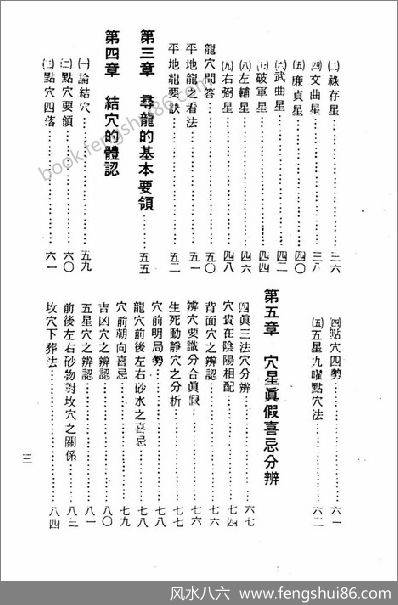 ㈢祿存星……三六
㈣文曲星……三八
㈤廉貞星……四〇
㈥武曲星……四二
㈦破軍星……四四
㈧左輔星……四六
㈨右弼星……四八
龍穴問答……五〇
平地龍之看法……五一
平地龍要訣……五二
第三章 尋龍的基本要領……五五
第四章 結穴的體認
㈠論結穴……五九
㈡點穴要領……六〇
㈢點穴四落……六一
㈣點穴四勢……六一
㈤五星九曜點穴法……六二
第五章 穴星眞假喜忌分辨
四眞三法穴分辨……六七
穴貴在陰陽相配……七四
背面穴之辨認……七六
辨穴要識分合眞假……七六
生死動靜穴之分析……七七
穴前明局勢……七八
龍穴前後左右砂水之喜忌……七八
穴前朝向喜忌……七九
吉凶穴之辨認……八〇
五星穴之辨認……八一
前後左右砂物對坟穴之關係……八三
坟穴下葬法……八四
三
book.fengshui86.com
风水八六 www.fengshui86.com